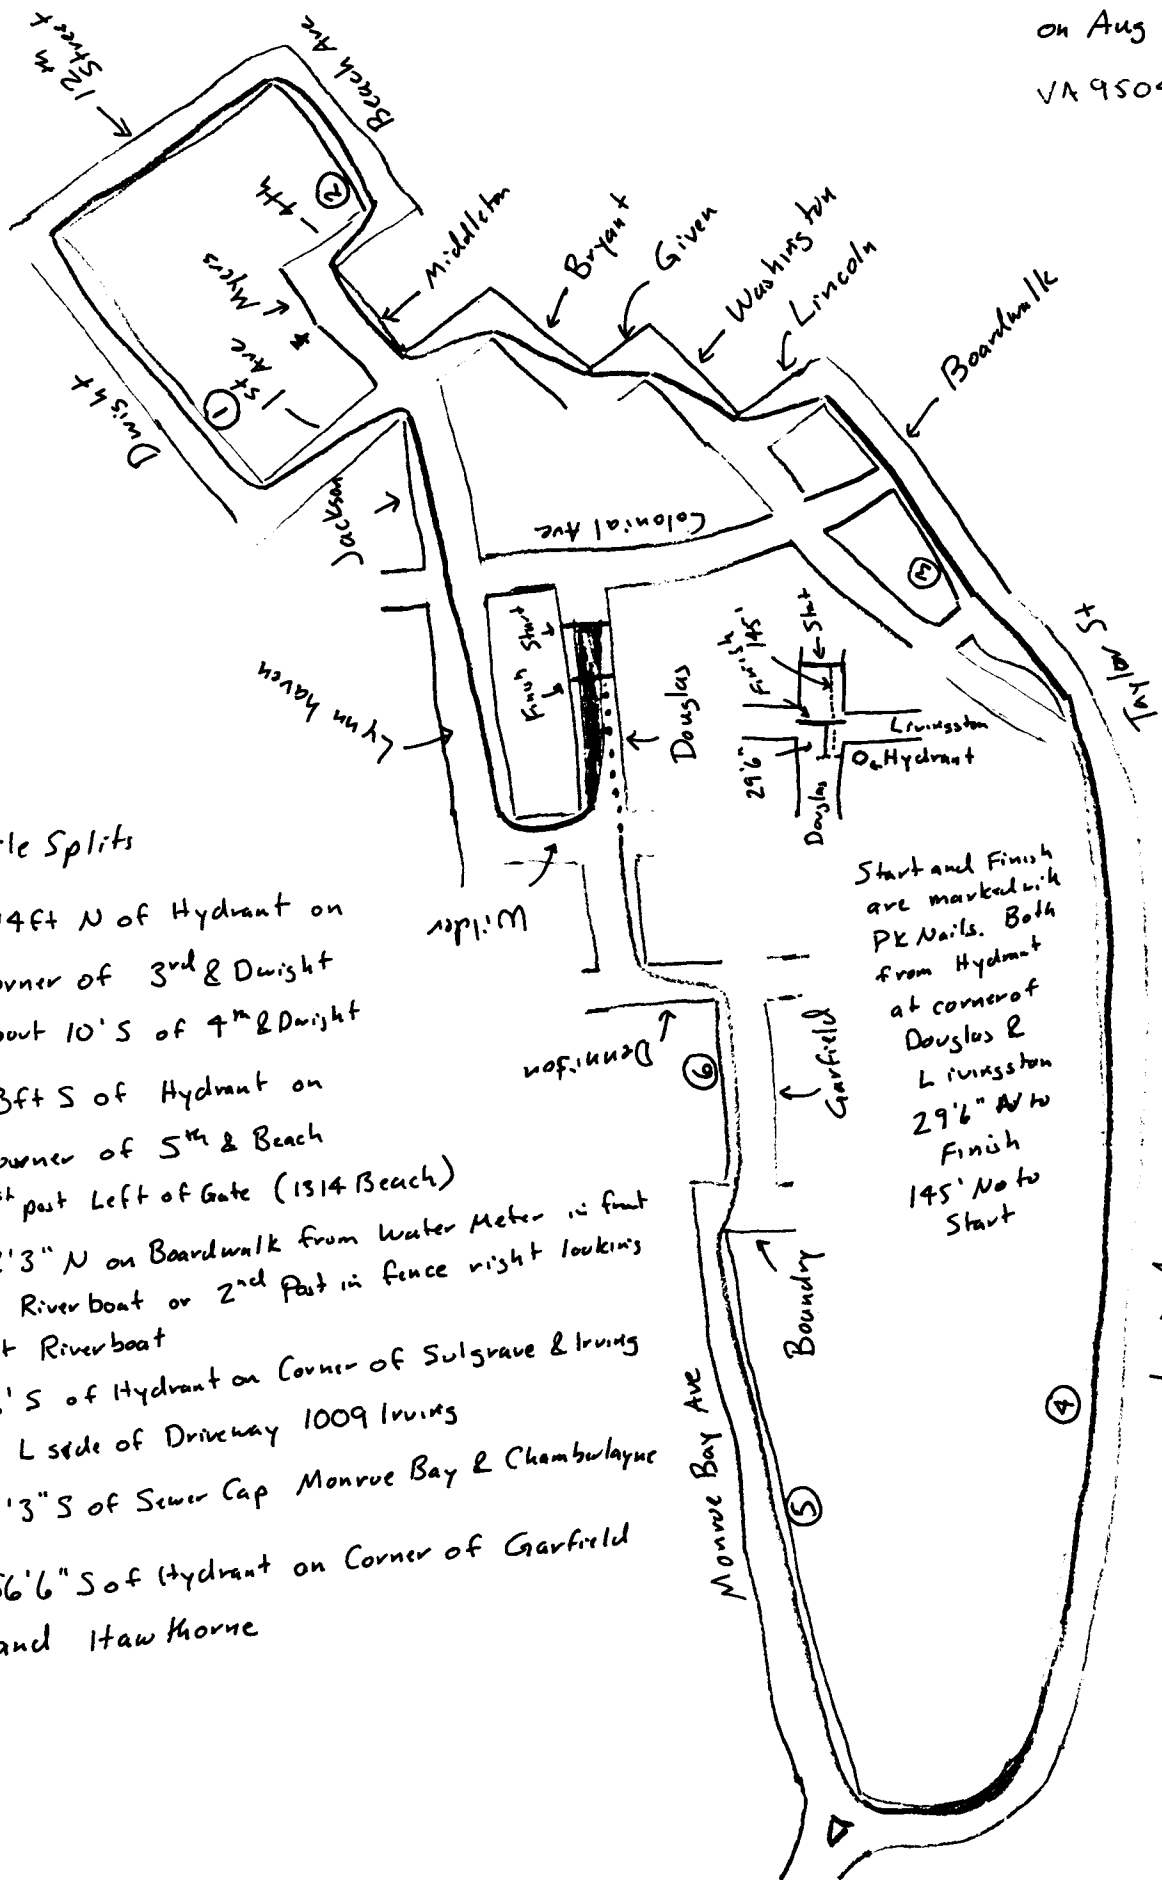 on Aug
VA 950
12th
Street
Beach Ave
2
4th
Myers
1st
Ave
1
Dwight
Middleton
Bryant
Given
Washington
Lincoln
Boardwalk
Jackson
Colonial Ave
3
Taylor St
Lynnhaven
Finish
Start
Douglas
Finish
145'
Start
29'6"
Livingston
Hydrant
Douglas
Wilder
Dennison
6
Garfield
Start and Finish
are marked with
PK Nails. Both
from Hydrant
at corner of
Douglas &
Livingston
29'6" N to
Finish
145' No to
Start
Boundry
Monroe Bay Ave
4
5
le Splits
4ft N of Hydrant on
orner of 3rd & Dwight
bout 10' S of 4th & Dwight
3ft S of Hydrant on
orner of 5th & Beach
st post Left of Gate (1314 Beach)
2'3" N on Boardwalk from Water Meter in front
Riverboat or 2nd Post in fence right looking
t Riverboat
' S of Hydrant on Corner of Sulgrave & Irving
L side of Driveway 1009 Irving
'3" S of Sewer Cap Monroe Bay & Chamberlayne
56'6" S of Hydrant on Corner of Garfield
and Hawthorne